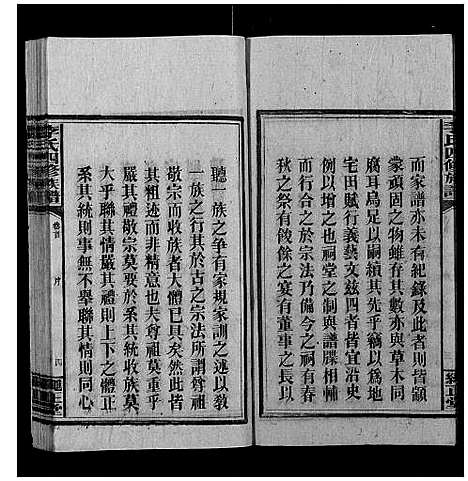 而家譜亦未有紀錄及此者則皆顓
蒙頑固之物雖存其數亦與草木同
腐耳烏足以嗣續其先乎竊以為地
宅田賦行義藝文茲四者皆宜沿史
例以增之也祠堂之制與譜牒相輔
而行合之於宗法乃備今之祠有春
秋之祭有餕餘之宴有董事之長以
聽一族之爭有家規家訓之述以敎
一族之行其於古之宗法所謂尊祖
敬宗而收族者大體已具矣然此皆
其粗迹而非精意也夫尊祖莫重乎
嚴其禮敬宗莫要於系其統收族莫
大乎聯其情嚴其禮則上下之體正
系其統則事無不舉聯其情則同心
李氏四修族譜
卷首
序
四